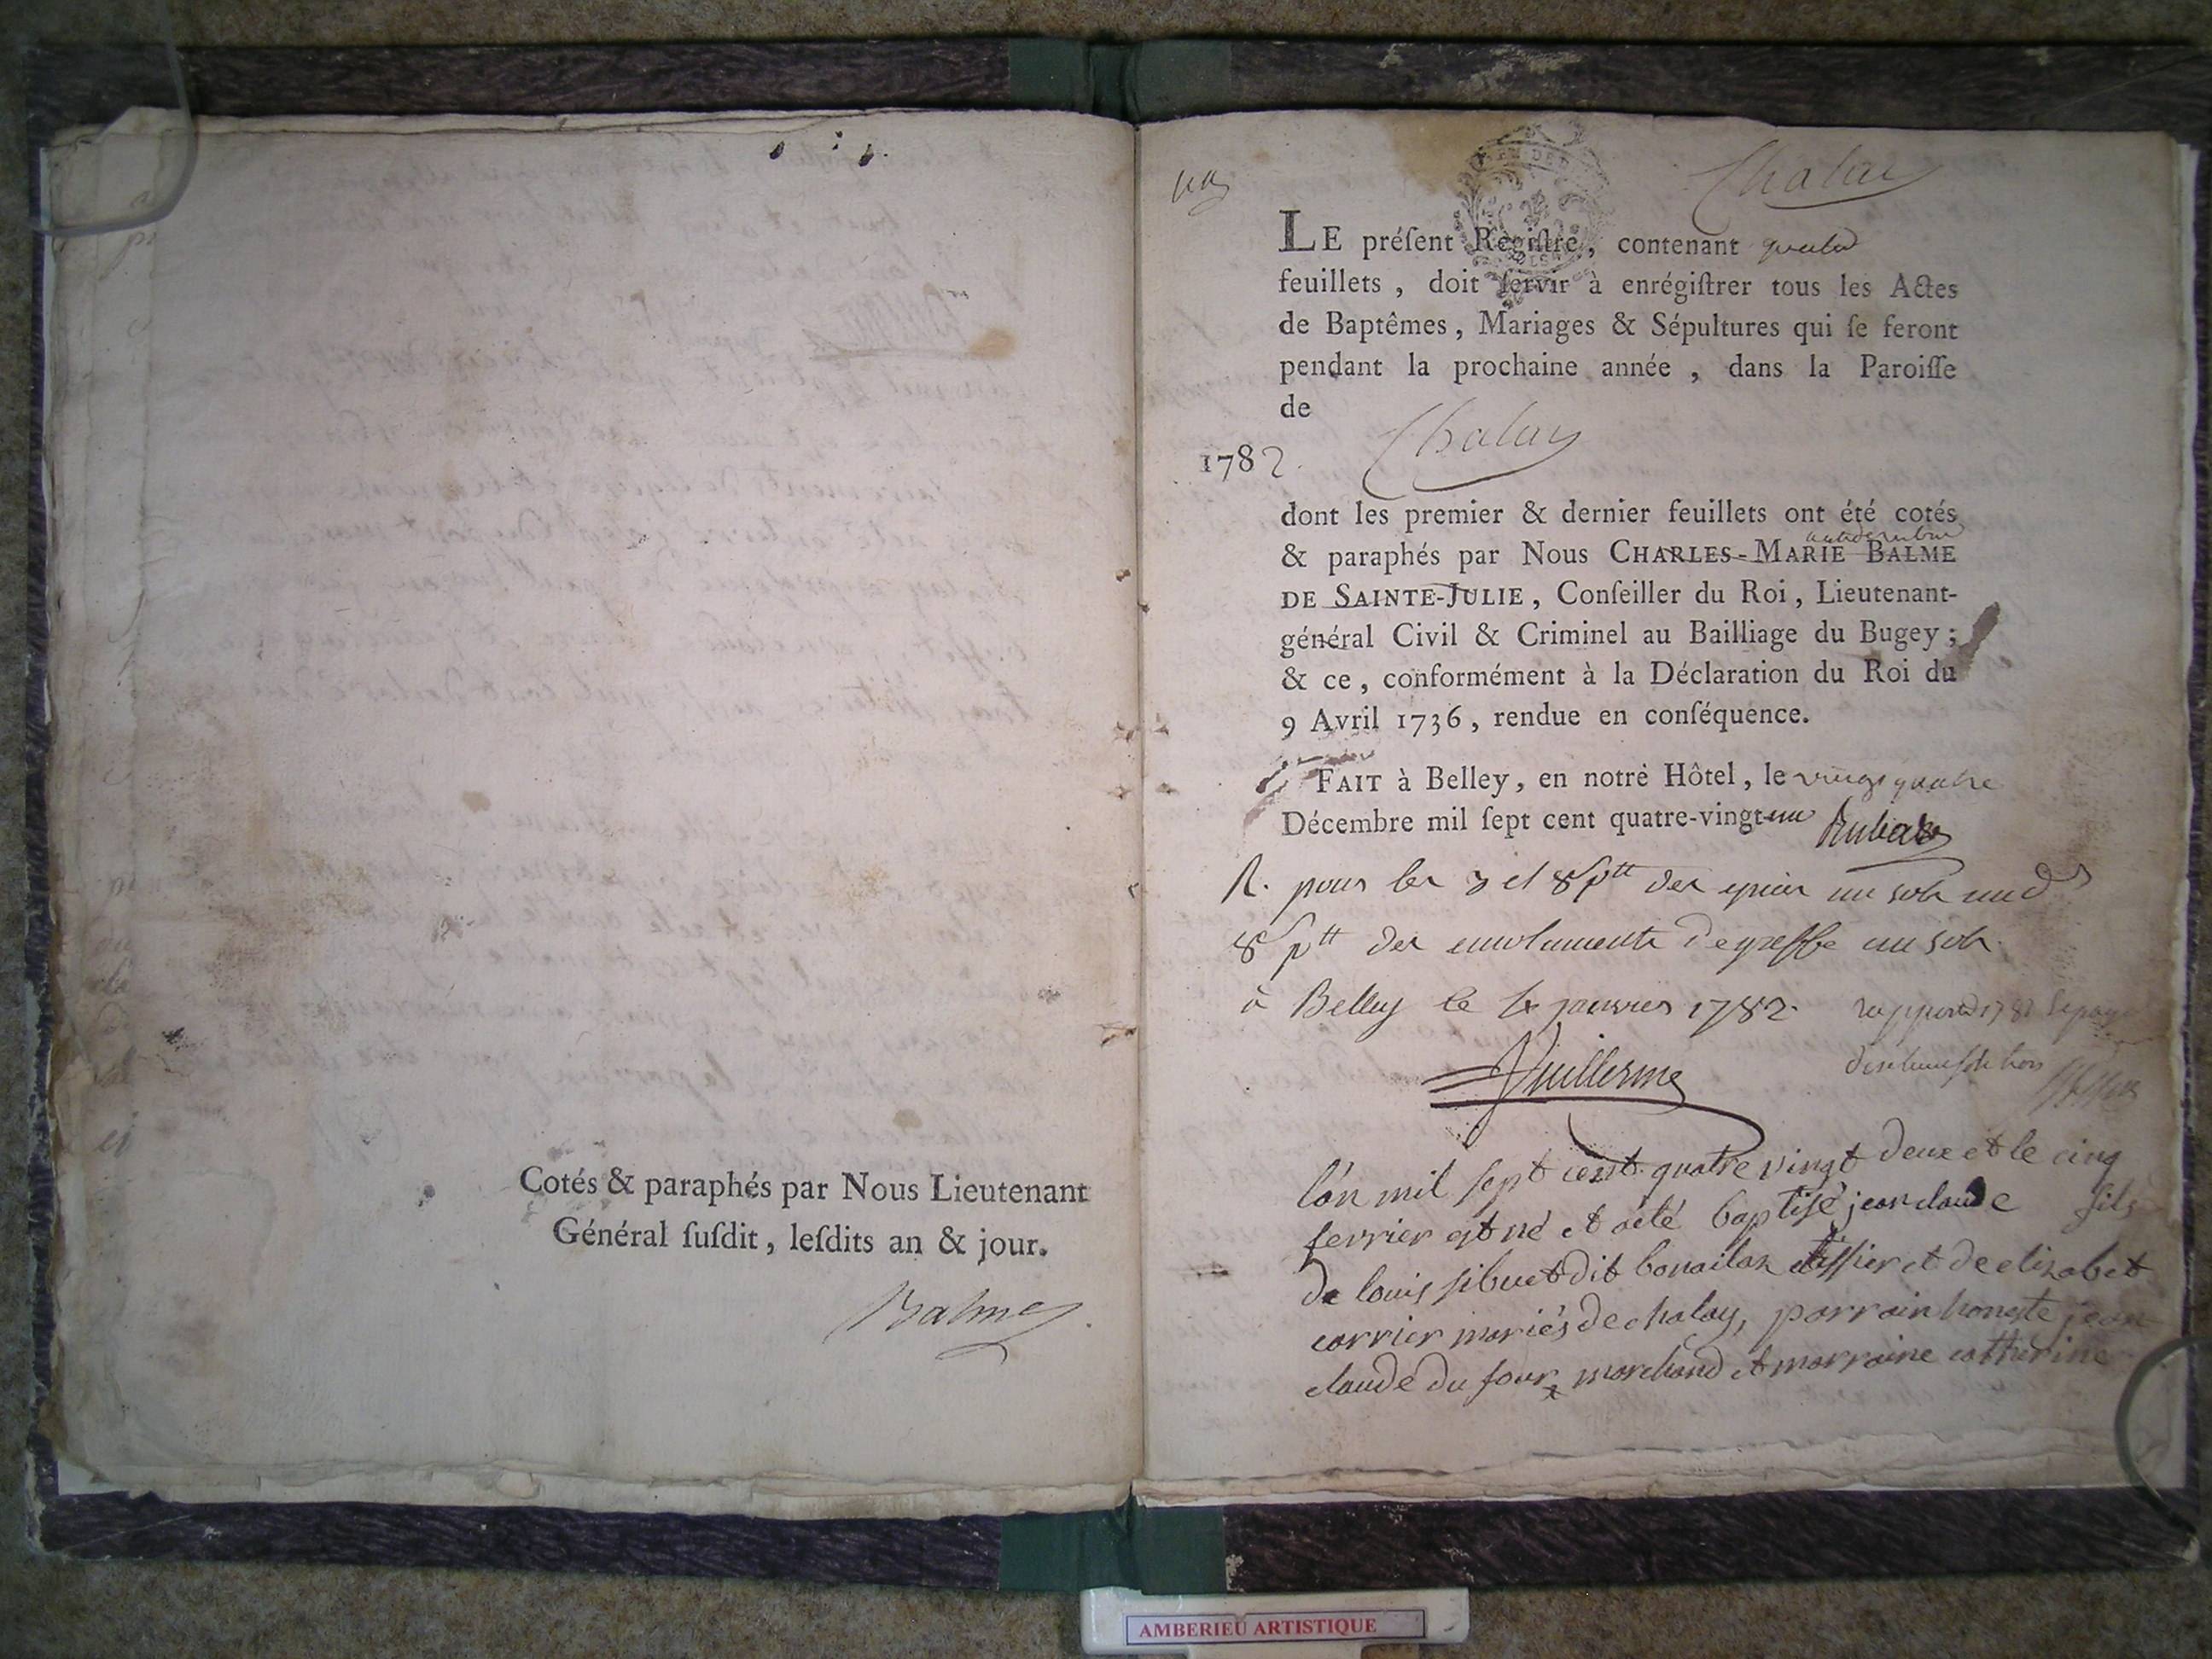 Cotés & paraphés par Nous Lieutenant
Général ſuſdit, leſdits an & jour.
Balme
Chalay
LE préſent Regiſtre, contenant quatre
feuillets, doit ſervir à enrégiſtrer tous les Actes
de Baptêmes, Mariages & Sépultures qui ſe feront
pendant la prochaine année, dans la Paroiſſe
de
Chalay
1782.
dont les premier & dernier feuillets ont été cotés
& paraphés par Nous CHARLES-MARIE BALME
DE SAINTE-JULIE, Conſeiller du Roi, Lieutenant-
général Civil & Criminel au Bailliage du Bugey;
& ce, conformément à la Déclaration du Roi du
9 Avril 1736, rendue en conſéquence.
FAIT à Belley, en notre Hôtel, le vingt quatre
Décembre mil ſept cent quatre-vingt-un
R. pour les 3 et 8 ptt des epices un sols
8 ptt des emoluments de greffe un sols
à Belley le janvier 1782.
Guillerme
l'an mil sept cent quatre vingt deux et le cinq
fevrier est né et a été baptisé jean claude fils
de louis sibuet dit bonailan et de elizabet
carrier mariés de chalay, parrain honeste jean
claude du four marchand et marraine catherine
AMBERIEU ARTISTIQUE